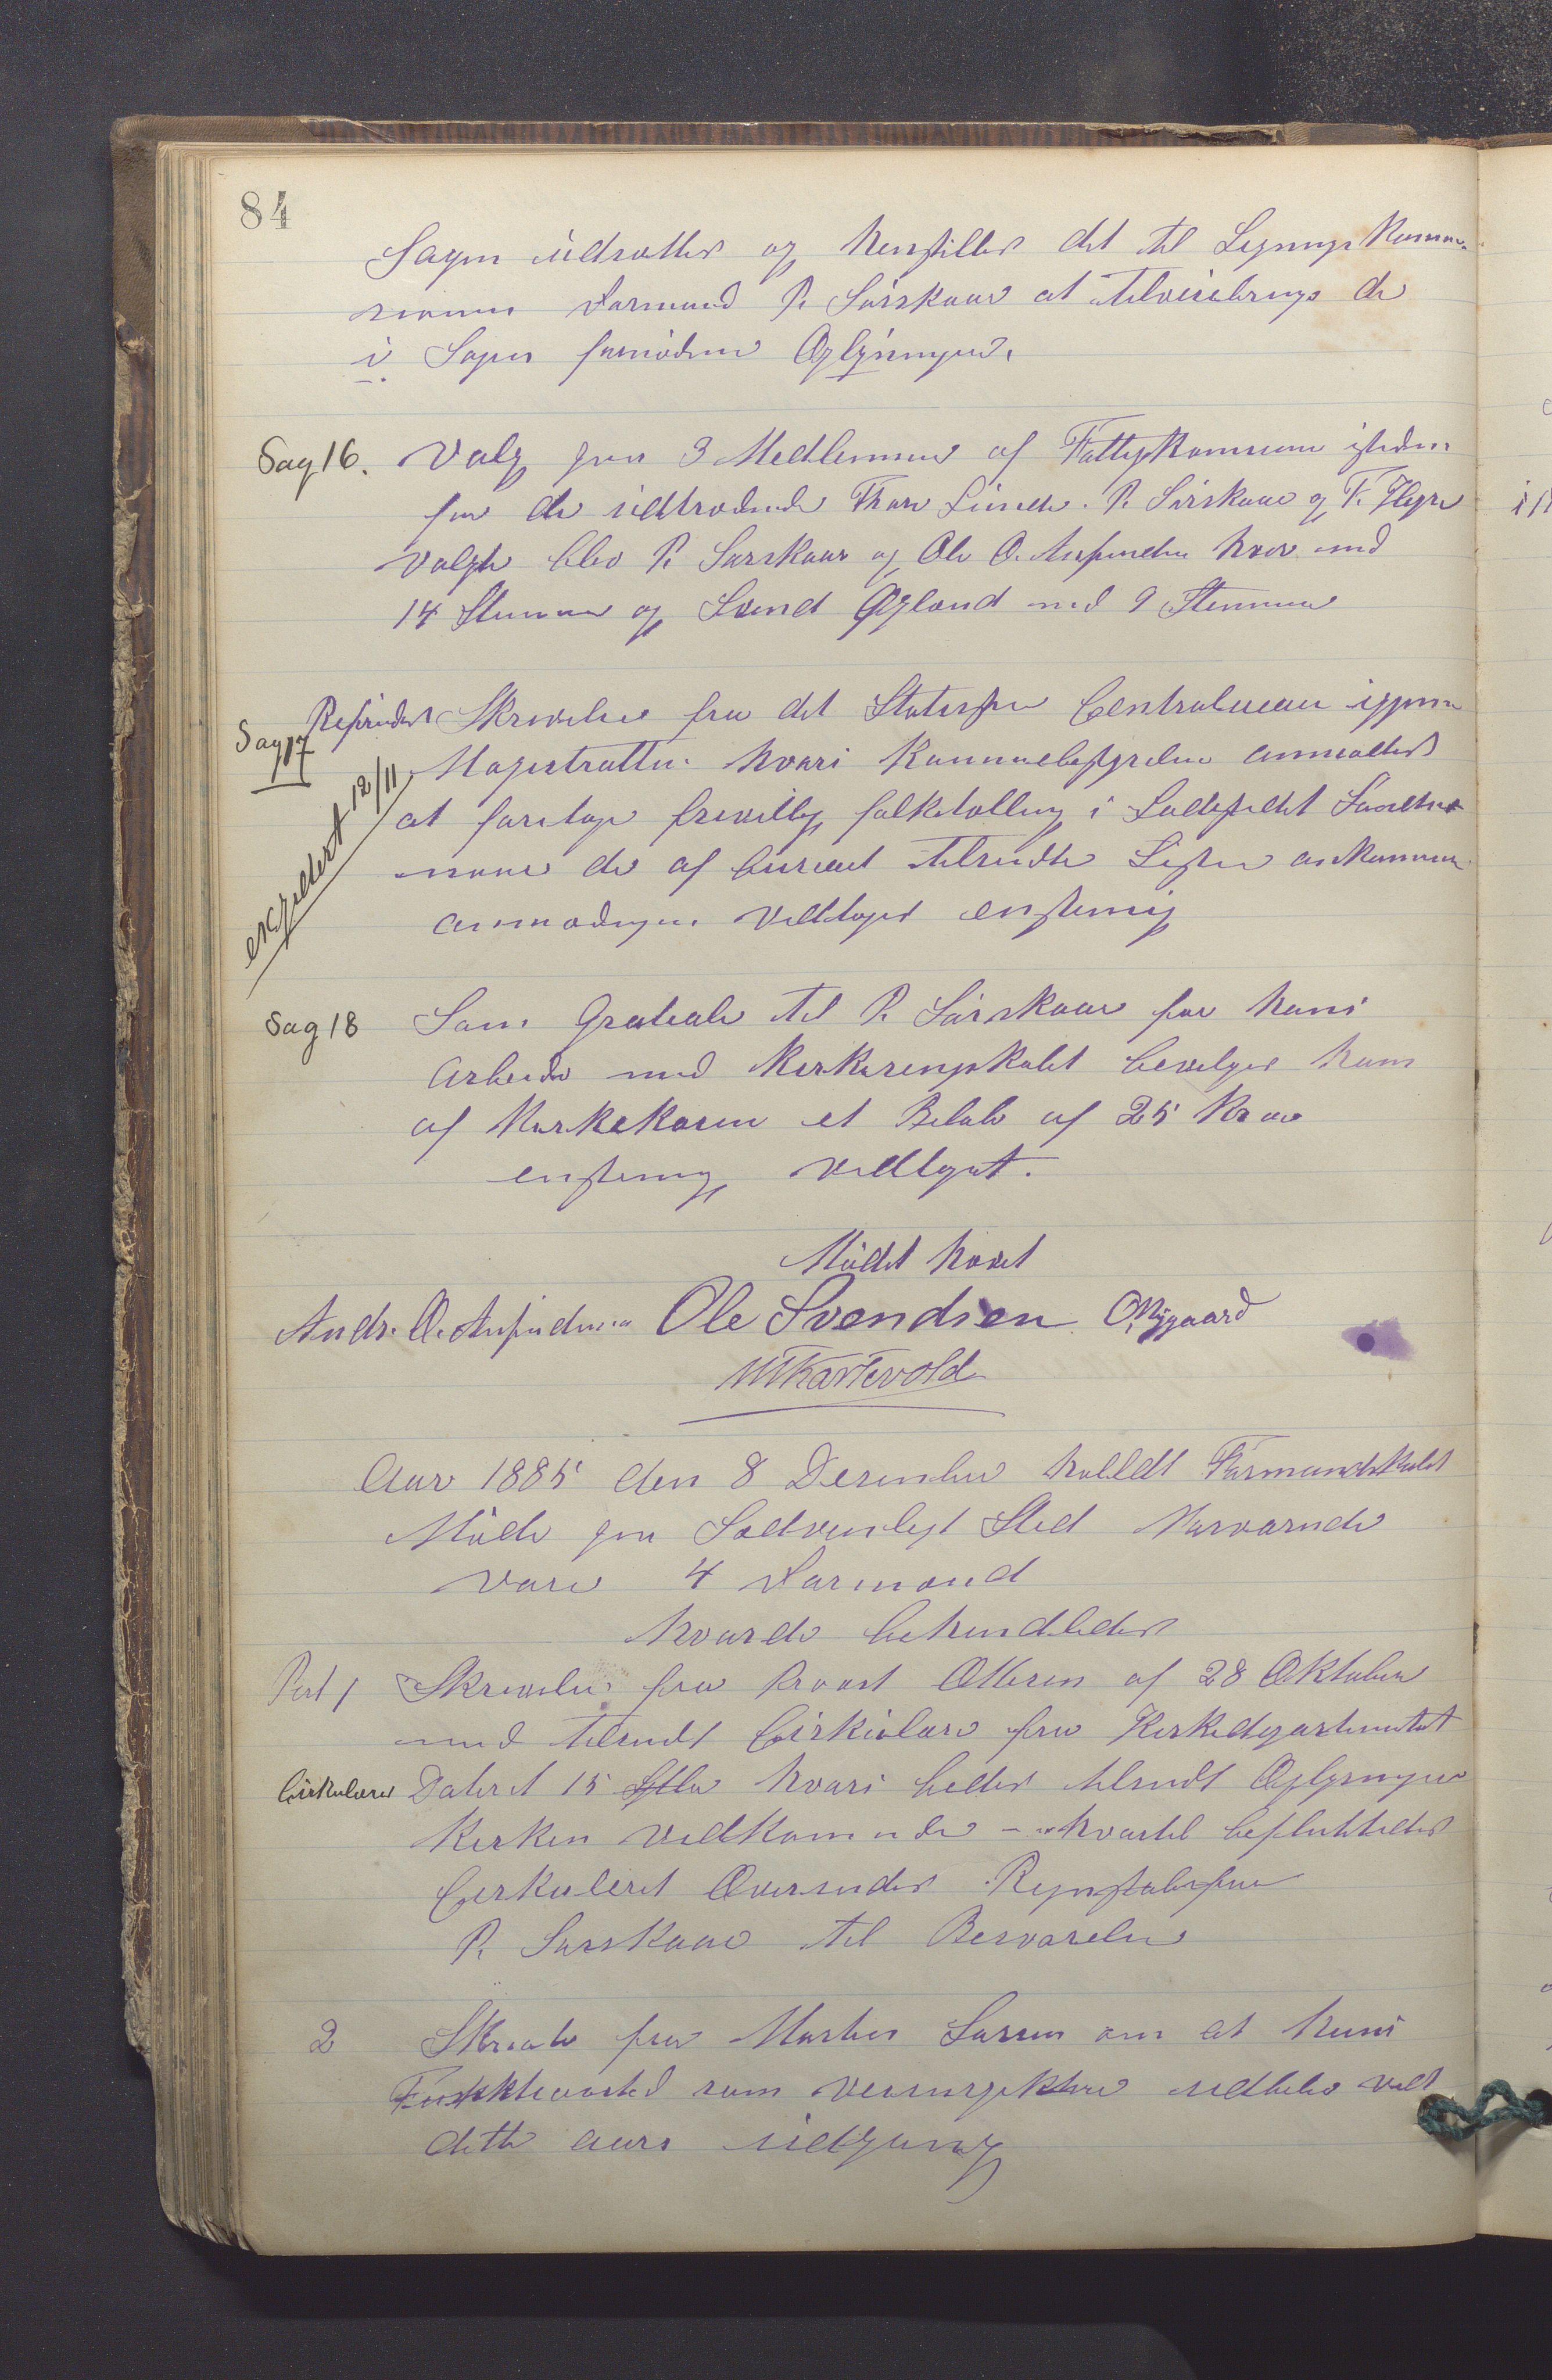 84
Sagen udsættes og henstilles det til Ligningskommis-
sionens Formand P. Sørskaar at tilveiebringe de
i Sagen fornødne Oplysninger.
Sag 16. Valg paa 3 Medlemmer af Fattigkomsionen istedenn
for de udtrædende Thore Lunde. P. Sørskaar og T. Hegre
valgte blev P. Sørskaar og Ole O. Aspendsen hver med
14 Stemmer og Svend Øgland med 9 Stemmer
Sag 17 Refereredes Skrivelse fra det Statistiske Centralbureau igjennem
Magistratten. hvori Kommunebestyrelsen anmodedes
at foretage frivillig folketælling i Ladestedet Sandnes
naar de af bureauet tilsendte Lister ankommer
anmodningen vedtoges enstemmig
expedert 12/11
Sag 18 Som Gratiale til P. Sørskaar for hans
Arbeide med Kirkeregnskabet bevilges ham
af Kirkekassen et Beløb af 25 Kroner
enstemmig vedtaget.
Mødet hævet
Andr. O. Aspendsen Ole Svendsen O. Nygaard
MTKartevold
Aar 1885 den 8 Desember holdt Formandskabet
Møde paa Sædvanligt Sted Nærværende
vare 4 Formænd
hvorda behandledes
Post 1 Skrivelse fra Provst Ottesen af 28 Oktober
med tilsendt Cirkulære fra Kirkedepartementet
Cirkulæret Dateret 15 hvori bedes tilsendt Oplysninger
Kirken vedkommende - hvortil besluttedes
Cirkuleret Oversendes Regnskabsfører
P. Sørskaar til Besvarelse
2 Skrivelse fra fra Larsen om at hans
som udløber ved
dette aars udgang